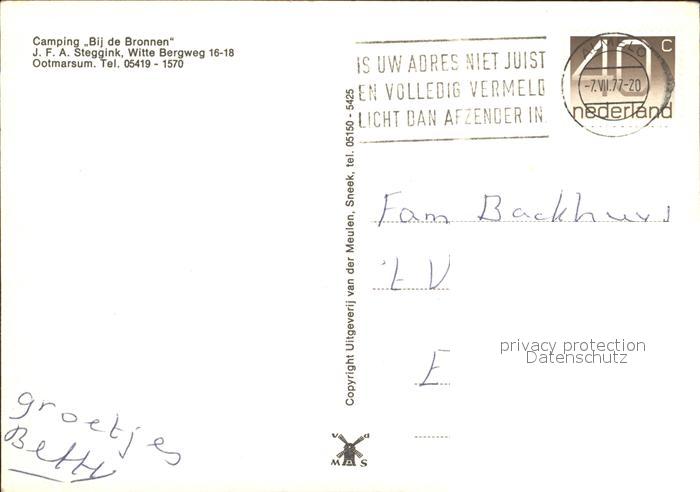 Camping „Bij de Bronnen"
J. F. A. Steggink, Witte Bergweg 16-18
Ootmarsum. Tel. 05419 - 1570
IS UW ADRES NIET JUIST
EN VOLLEDIG VERMELD
LICHT DAN AFZENDER IN.
ALMELO
-7.VII.77-20
40 C
nederland
Copyright Uitgeverij van der Meulen, Sneek, tel. 05150 - 5425
Fam Backhuys
't V
E
privacy protection
Datenschutz
groetjes
Betty
v d
M S